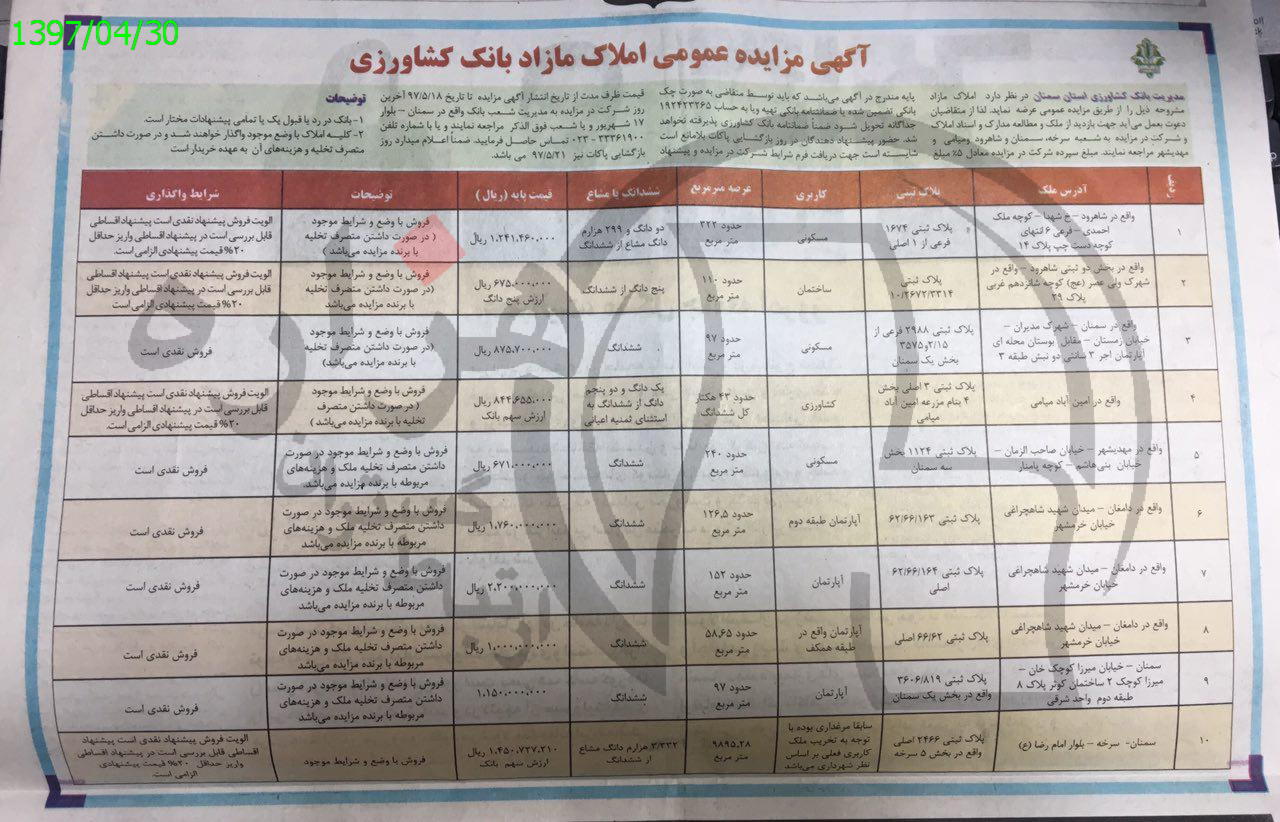 1397/04/30
آگهی مزایده عمومی املاک مازاد بانک کشاورزی
مدیریت بانک کشاورزی استان سمنان در نظر دارد املاک مازاد
مشروحه ذیل را از طریق مزایده عمومی عرضه نماید. لذا از متقاضیان
دعوت بعمل می‌آید جهت بازدید از ملک و مطالعه مدارک و اسناد املاک
و شرکت در مزایده به شعبه سرخه، سمنان و شاهرود ومیامی و
مهدیشهر مراجعه نمایند. مبلغ سپرده شرکت در مزایده معادل ۵٪ مبلغ
پایه مندرج در آگهی می‌باشد که باید توسط متقاضی به صورت چک
بانکی تضمین شده یا ضمانتنامه بانکی تهیه ویا به حساب ۱۹۲۴۲۳۲۶۵
جداگانه تحویل شود ضمناً ضمانتنامه بانک کشاورزی پذیرفته نخواهد
شد. حضور پیشنهاد دهندگان در روز بازگشایی پاکات بلامانع است
شایسته است جهت دریافت فرم شرایط شرکت در مزایده و پیشنهاد
قیمت ظرف مدت از تاریخ انتشار آگهی مزایده تا تاریخ ۹۷/۵/۱۸ آخرین
روز شرکت در مزایده به مدیریت شعب بانک واقع در سمنان – بلوار
۱۷ شهریور و یا شعب فوق الذکر مراجعه نمایند و یا با شماره تلفن
۳۳۳۶۱۹۰۰ - ۰۲۳ تماس حاصل فرمایید. ضمناً اعلام میدارد روز
بازگشایی پاکات نیز ۹۷/۵/۲۱ می باشد.
توضیحات
۱- بانک در رد یا قبول یک یا تمامی پیشنهادات مختار است.
۲- کلیه املاک با وضع موجود واگذار خواهند شد و در صورت داشتن
متصرف تخلیه و هزینه‌های آن به عهده خریدار است
ردیف آدرس ملک پلاک ثبتی کاربری عرصه مترمربع ششدانگ یا مشاع قیمت پایه (ریال) توضیحات شرایط واگذاری
۱
واقع در شاهرود – خ شهدا – کوچه ملک
احمدی – فرعی ۶ انتهای
کوچه دست چپ پلاک ۱۴
پلاک ثبتی ۱۶۷۴
فرعی از ۱ اصلی
مسکونی
حدود ۳۲۲
متر مربع
دو دانگ و ۲۹۹ هزارم
دانگ مشاع از ششدانگ
۱.۲۴۱.۴۶۰.۰۰۰ ریال
فروش با وضع و شرایط موجود
( در صورت داشتن متصرف تخلیه
با برنده مزایده می‌باشد )
الویت فروش پیشنهاد نقدی است پیشنهاد اقساطی
قابل بررسی است در پیشنهاد اقساطی واریز حداقل
۲۰٪ قیمت پیشنهادی الزامی است.
۲
واقع در بخش دو ثبتی شاهرود – واقع در
شهرک ولی عصر (عج) کوچه شانزدهم غربی
پلاک ۲۹
پلاک ثبتی
۱۰/۲۶۷۲/۳۳۱۴
ساختمان
حدود ۱۱۰
متر مربع
پنج دانگ از ششدانگ
۶۷۵.۰۰۰.۰۰۰ ریال
ارزش پنج دانگ
فروش با وضع و شرایط موجود
(در صورت داشتن متصرف تخلیه
با برنده مزایده می‌باشد
الویت فروش پیشنهاد نقدی است پیشنهاد اقساطی
قابل بررسی است در پیشنهاد اقساطی واریز حداقل
۲۰٪ قیمت پیشنهادی الزامی است
۳
واقع در سمنان – شهرک مدیران –
خیابان زمستان – مقابل بوستان محله ای
آپارتمان اجر ۳ سانتی دو نبش طبقه ۳
پلاک ثبتی ۲۹۸۸ فرعی از
۲/۱۵و۳۵۷۵
بخش یک سمنان
مسکونی
حدود ۹۷
متر مربع
ششدانگ
۸۷۵.۷۰۰.۰۰۰ ریال
فروش با وضع و شرایط موجود
(در صورت داشتن متصرف تخلیه
با برنده مزایده می‌باشد)
فروش نقدی است
۴
واقع در امین آباد میامی
پلاک ثبتی ۳ اصلی بخش
۴ بنام مزرعه امین آباد
میامی
کشاورزی
حدود ۴۳ هکتار
کل ششدانگ
یک دانگ و دو پنجم
دانگ از ششدانگ به
استثنای ثمنیه اعیانی
۸۴۴.۶۵۵.۰۰۰ ریال
ارزش سهم بانک
فروش با وضع و شرایط موجود
( در صورت داشتن متصرف
تخلیه با برنده مزایده می‌باشد )
الویت فروش پیشنهاد نقدی است پیشنهاد اقساطی
قابل بررسی است در پیشنهاد اقساطی واریز حداقل
۲۰٪ قیمت پیشنهادی الزامی است.
۵
واقع در مهدیشهر – خیابان صاحب الزمان –
خیابان بنی‌هاشم – کوچه پامنار
پلاک ثبتی ۱۱۲۴ بخش
سه سمنان
مسکونی
حدود ۲۴۰
متر مربع
ششدانگ
۶۷۱.۰۰۰.۰۰۰ ریال
فروش با وضع و شرایط موجود در صورت
داشتن متصرف تخلیه ملک و هزینه‌های
مربوطه با برنده مزایده می‌باشد.
فروش نقدی است
۶
واقع در دامغان – میدان شهید شاهچراغی
خیابان خرمشهر
پلاک ثبتی ۶۲/۶۶/۱۶۳
آپارتمان طبقه دوم
حدود ۱۲۶.۵
متر مربع
ششدانگ
۱.۷۶۰.۰۰۰.۰۰۰ ریال
فروش با وضع و شرایط موجود در صورت
داشتن متصرف تخلیه ملک و هزینه‌های
مربوطه با برنده مزایده می‌باشد
فروش نقدی است
۷
واقع در دامغان – میدان شهید شاهچراغی
خیابان خرمشهر
پلاک ثبتی ۶۲/۶۶/۱۶۴
اصلی
آپارتمان
حدود ۱۵۲
متر مربع
ششدانگ
۲.۲۰۰.۰۰۰.۰۰۰ ریال
فروش با وضع و شرایط موجود در صورت
داشتن متصرف تخلیه ملک و هزینه‌های
مربوطه با برنده مزایده می‌باشد
فروش نقدی است
۸
واقع در دامغان – میدان شهید شاهچراغی
خیابان خرمشهر
پلاک ثبتی ۶۶/۶۲ اصلی
آپارتمان واقع در
طبقه همکف
حدود ۵۸.۶۵
متر مربع
ششدانگ
۱.۰۰۰.۰۰۰.۰۰۰ ریال
فروش با وضع و شرایط موجود در صورت
داشتن متصرف تخلیه ملک و هزینه‌های
مربوطه با برنده مزایده می‌باشد
فروش نقدی است
۹
سمنان – خیابان میرزا کوچک خان –
میرزا کوچک ۲ ساختمان کوثر پلاک ۸
طبقه دوم واحد شرقی
پلاک ثبتی ۳۶۰۶/۸۱۹
واقع در بخش یک سمنان
آپارتمان
حدود ۹۷
متر مربع
ششدانگ
۱.۱۵۰.۰۰۰.۰۰۰
فروش با وضع و شرایط موجود در صورت
داشتن متصرف تخلیه ملک و هزینه‌های
مربوطه با برنده مزایده می‌باشد
فروش نقدی است
۱۰
سمنان- سرخه – بلوار امام رضا (ع)
پلاک ثبتی ۲۴۶۶ اصلی
واقع در بخش ۵ سرخه
سابقا مرغداری بوده با
توجه به تخریب ملک
کاربری فعلی بر اساس
نظر شهرداری می‌باشد
۹۸۹۵.۲۸
متر مربع
۳/۳۳۲ هزارم دانگ مشاع
از ششدانگ
۱.۴۵۰.۷۲۷.۲۱۰ ریال
ارزش سهم بانک
فروش با وضع و شرایط موجود
الویت فروش پیشنهاد نقدی است پیشنهاد
اقساطی قابل بررسی است در پیشنهاد اقساطی
واریز حداقل ۲۰٪ قیمت پیشنهادی
الزامی است.